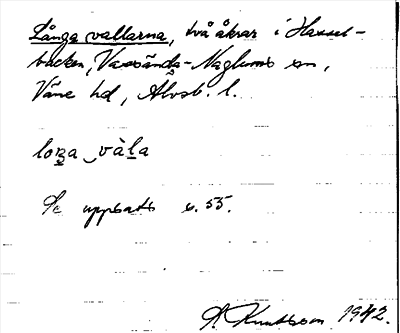 Långa vallarna, två åkrar i Hassel-
backen, Vassända-Naglums sn,
Väne hd, Älvsb. l.
loŋa vàla
Se uppsats s. 55.
A. Knutsson 1942.